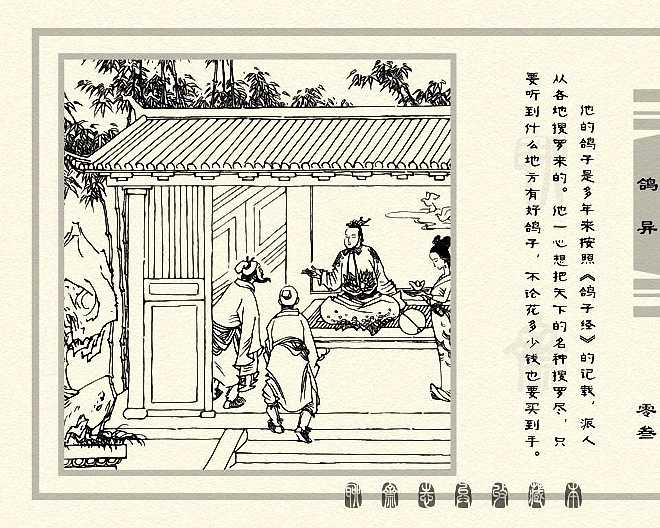 他的鸽子是多年来按照《鸽子经》的记载，派人
从各地搜罗来的。他一心想把天下的名种搜罗尽，只
要听到什么地方有好鸽子，不论花多少钱也要买到手。
鸽异
零叁